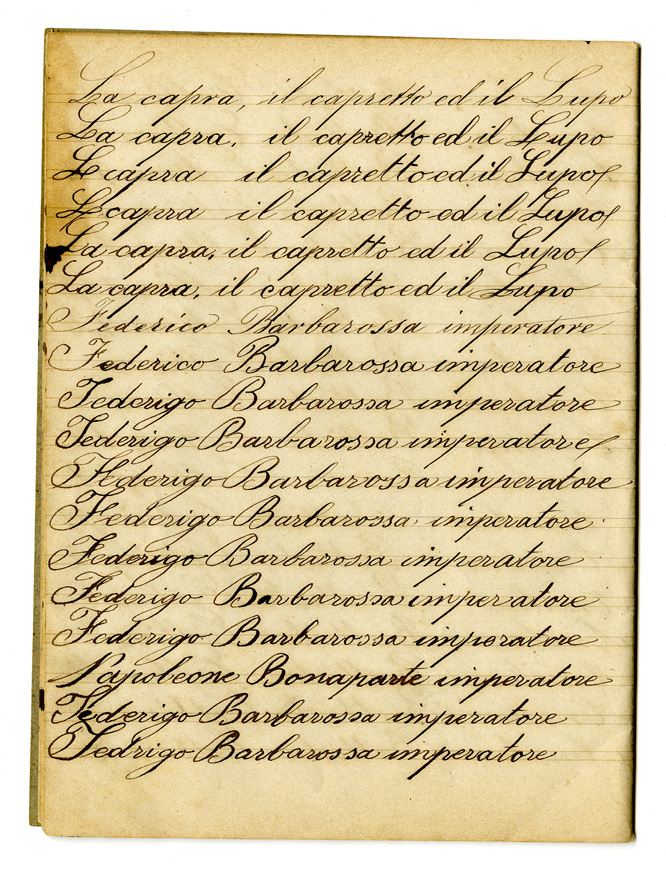 La capra, il capretto ed il Lupo
La capra, il capretto ed il Lupo
L capra il capretto ed il Lupo
L capra il capretto ed il Lupo
La capra, il capretto ed il Lupo
La capra, il capretto ed il Lupo
Federico Barbarossa imperatore
Federico Barbarossa imperatore
Federigo Barbarossa imperatore
Federigo Barbarossa imperatore
Federigo Barbarossa imperatore
Federigo Barbarossa imperatore
Federigo Barbarossa imperatore
Federigo Barbarossa imperatore
Federigo Barbarossa imperatore
Napoleone Bonaparte imperatore
Federigo Barbarossa imperatore
Fedrigo Barbarossa imperatore